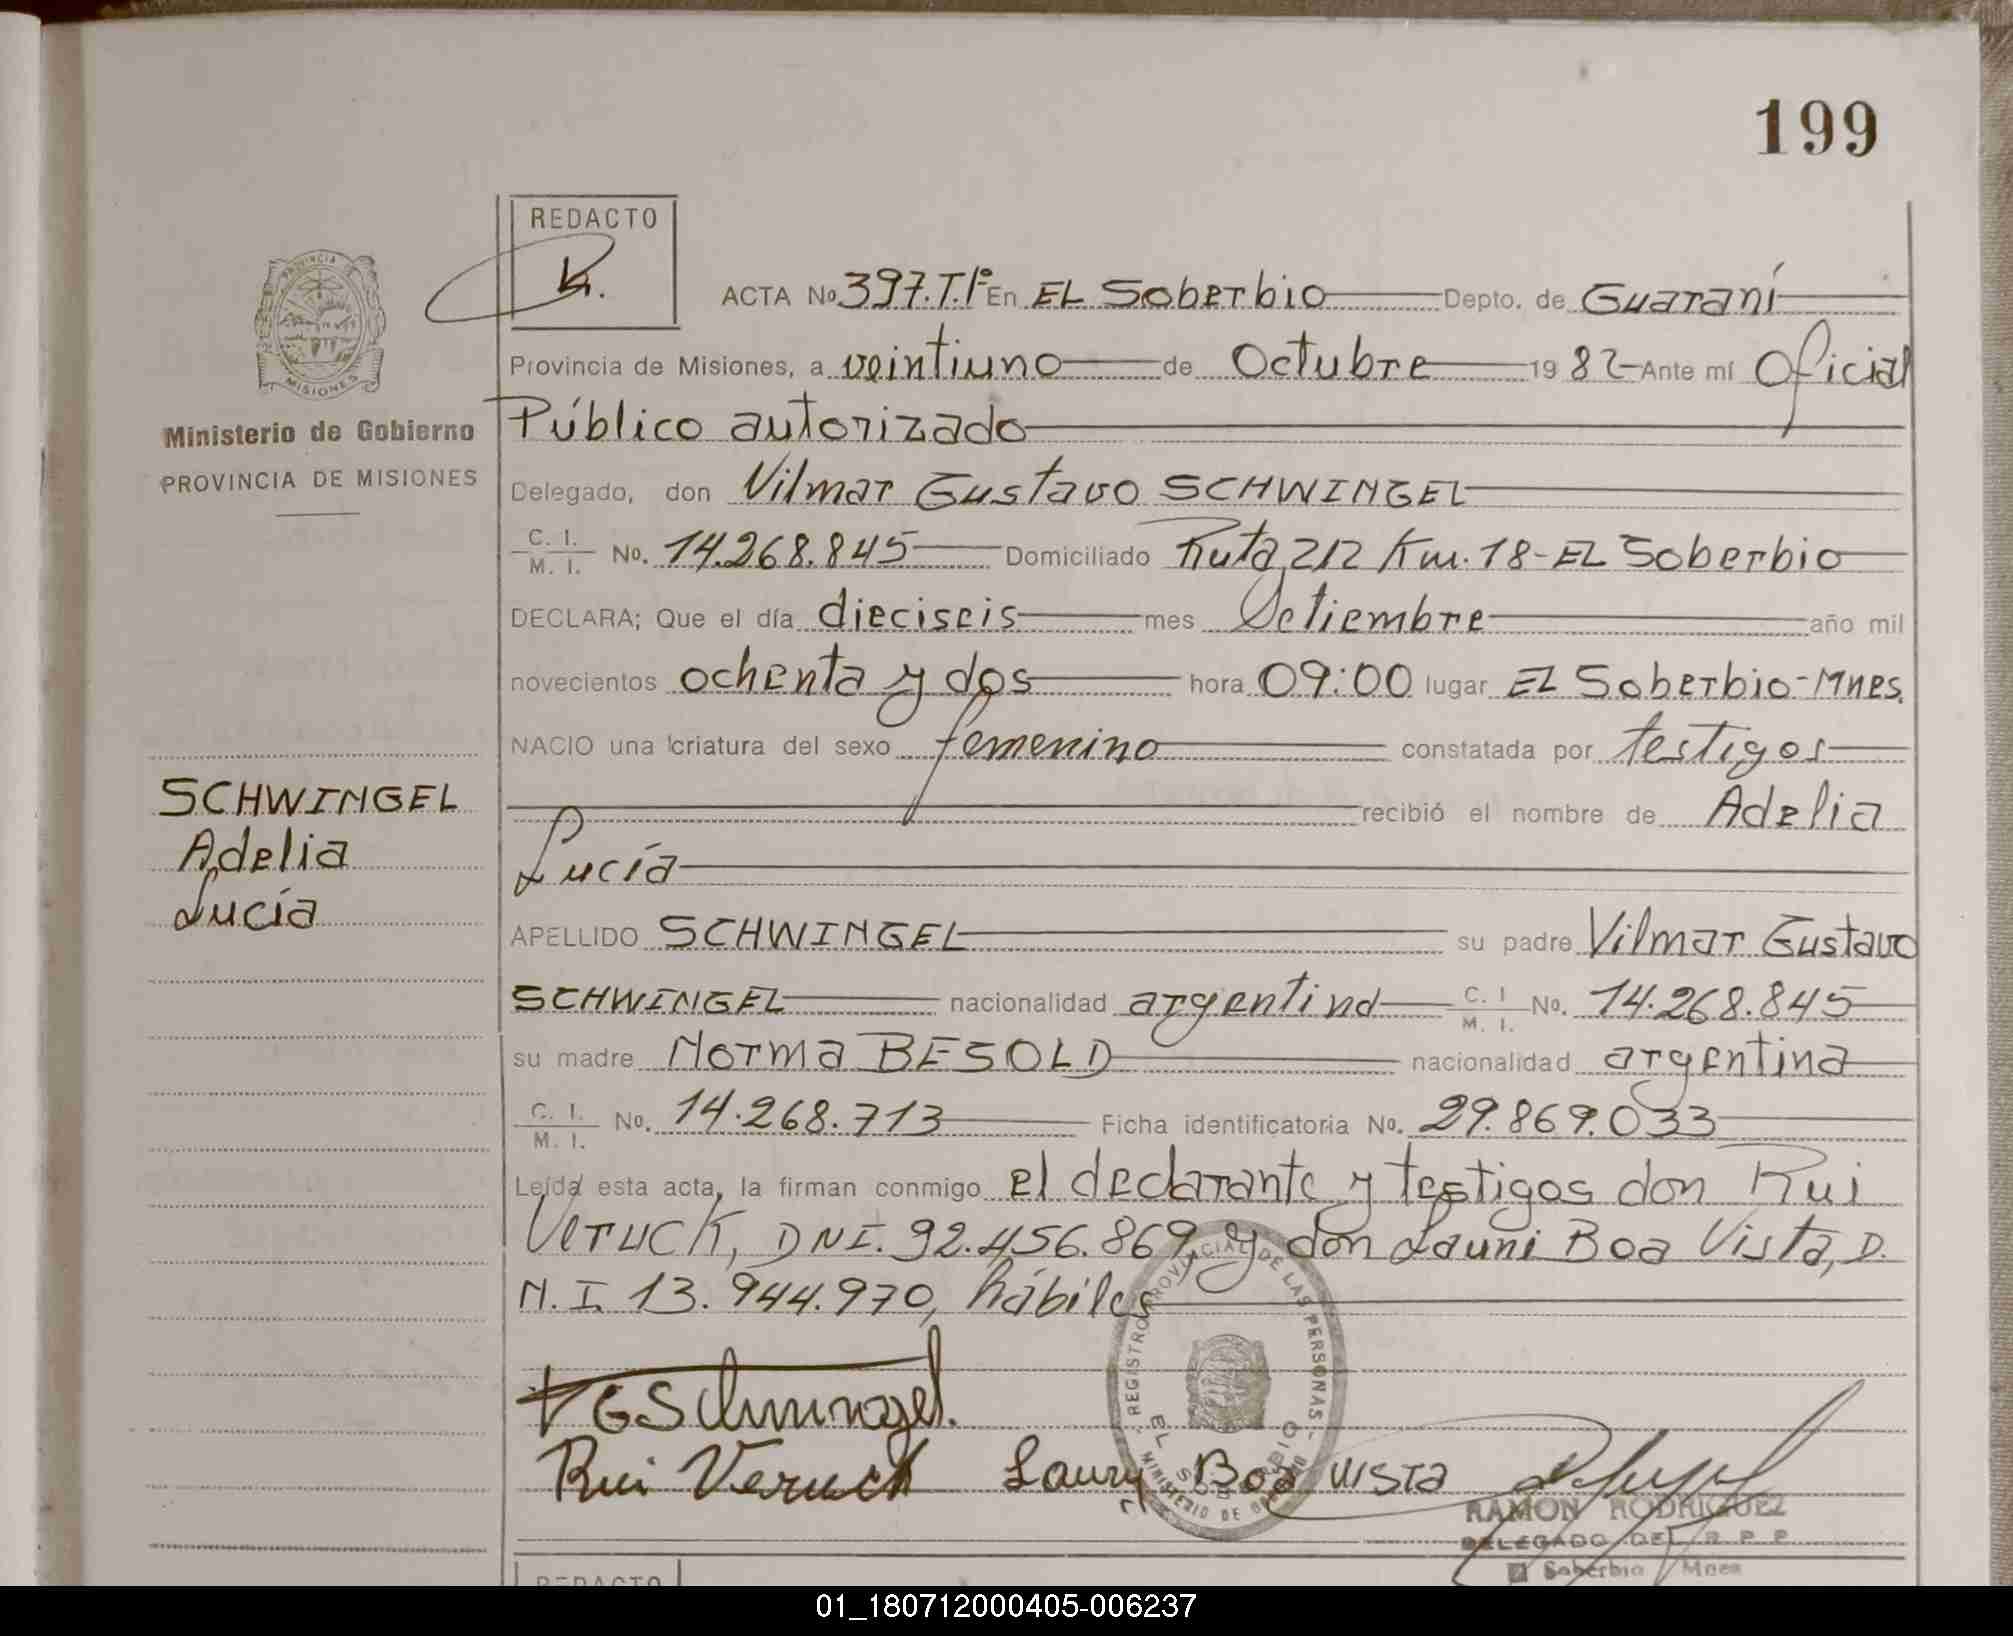 199
REDACTO
PROVINCIA DE MISIONES
ACTA No. 397.T.1º En EL Soberbio Depto. de Guaraní
Provincia de Misiones, a veintiuno de Octubre 1982 Ante mí Oficial
Público autorizado
Ministerio de Gobierno
PROVINCIA DE MISIONES
Delegado, don Vilmar Gustavo SCHWINGEL
C. I. M. I. No. 14.268.845 Domiciliado Ruta 212 Km. 18-EL Soberbio
DECLARA; Que el día dieciseis mes Setiembre año mil
novecientos ochenta y dos hora 09:00 lugar EL Soberbio-Mnes.
NACIO una criatura del sexo femenino constatada por testigos
recibió el nombre de Adelia
Lucía
SCHWINGEL
Adelia
Lucía
APELLIDO SCHWINGEL su padre Vilmar Gustavo
SCHWINGEL nacionalidad argentina C. I M. I. No. 14.268.845
su madre Norma BESOLD nacionalidad argentina
C. I. M. I. No. 14.268.713 Ficha identificatoria No. 29.869.033
Leída esta acta, la firman conmigo el declarante y testigos don Rui
Veruck, DNI. 92.456.869, y don Launi Boa Vista, D.
N.I. 13.944.970, hábiles
VGSchwingel.
Rui Veruck Laury Boa VISTA
REGISTRO PROVINCIAL DE LAS PERSONAS
EL SOBERBIO
MINISTERIO DE GOBIERNO
RAMON RODRIGUEZ
DELEGADO DEL R. P. P.
El Soberbio Mnes
REDACTO
01_180712000405-006237